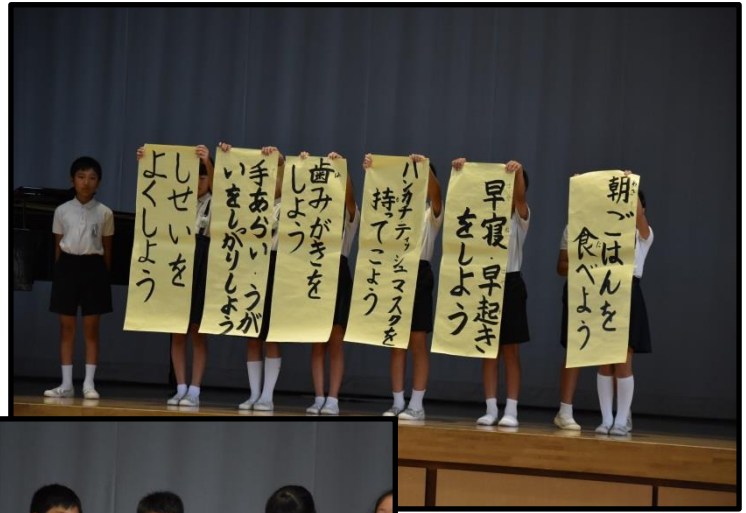 朝ごはんを
食べよう
早寝・早起き
をしよう
ハンカチティッシュマスクを
持ってこよう
歯みがきを
しよう
手あらい・うが
いをしっかりしよう
しせいを
よくしよう